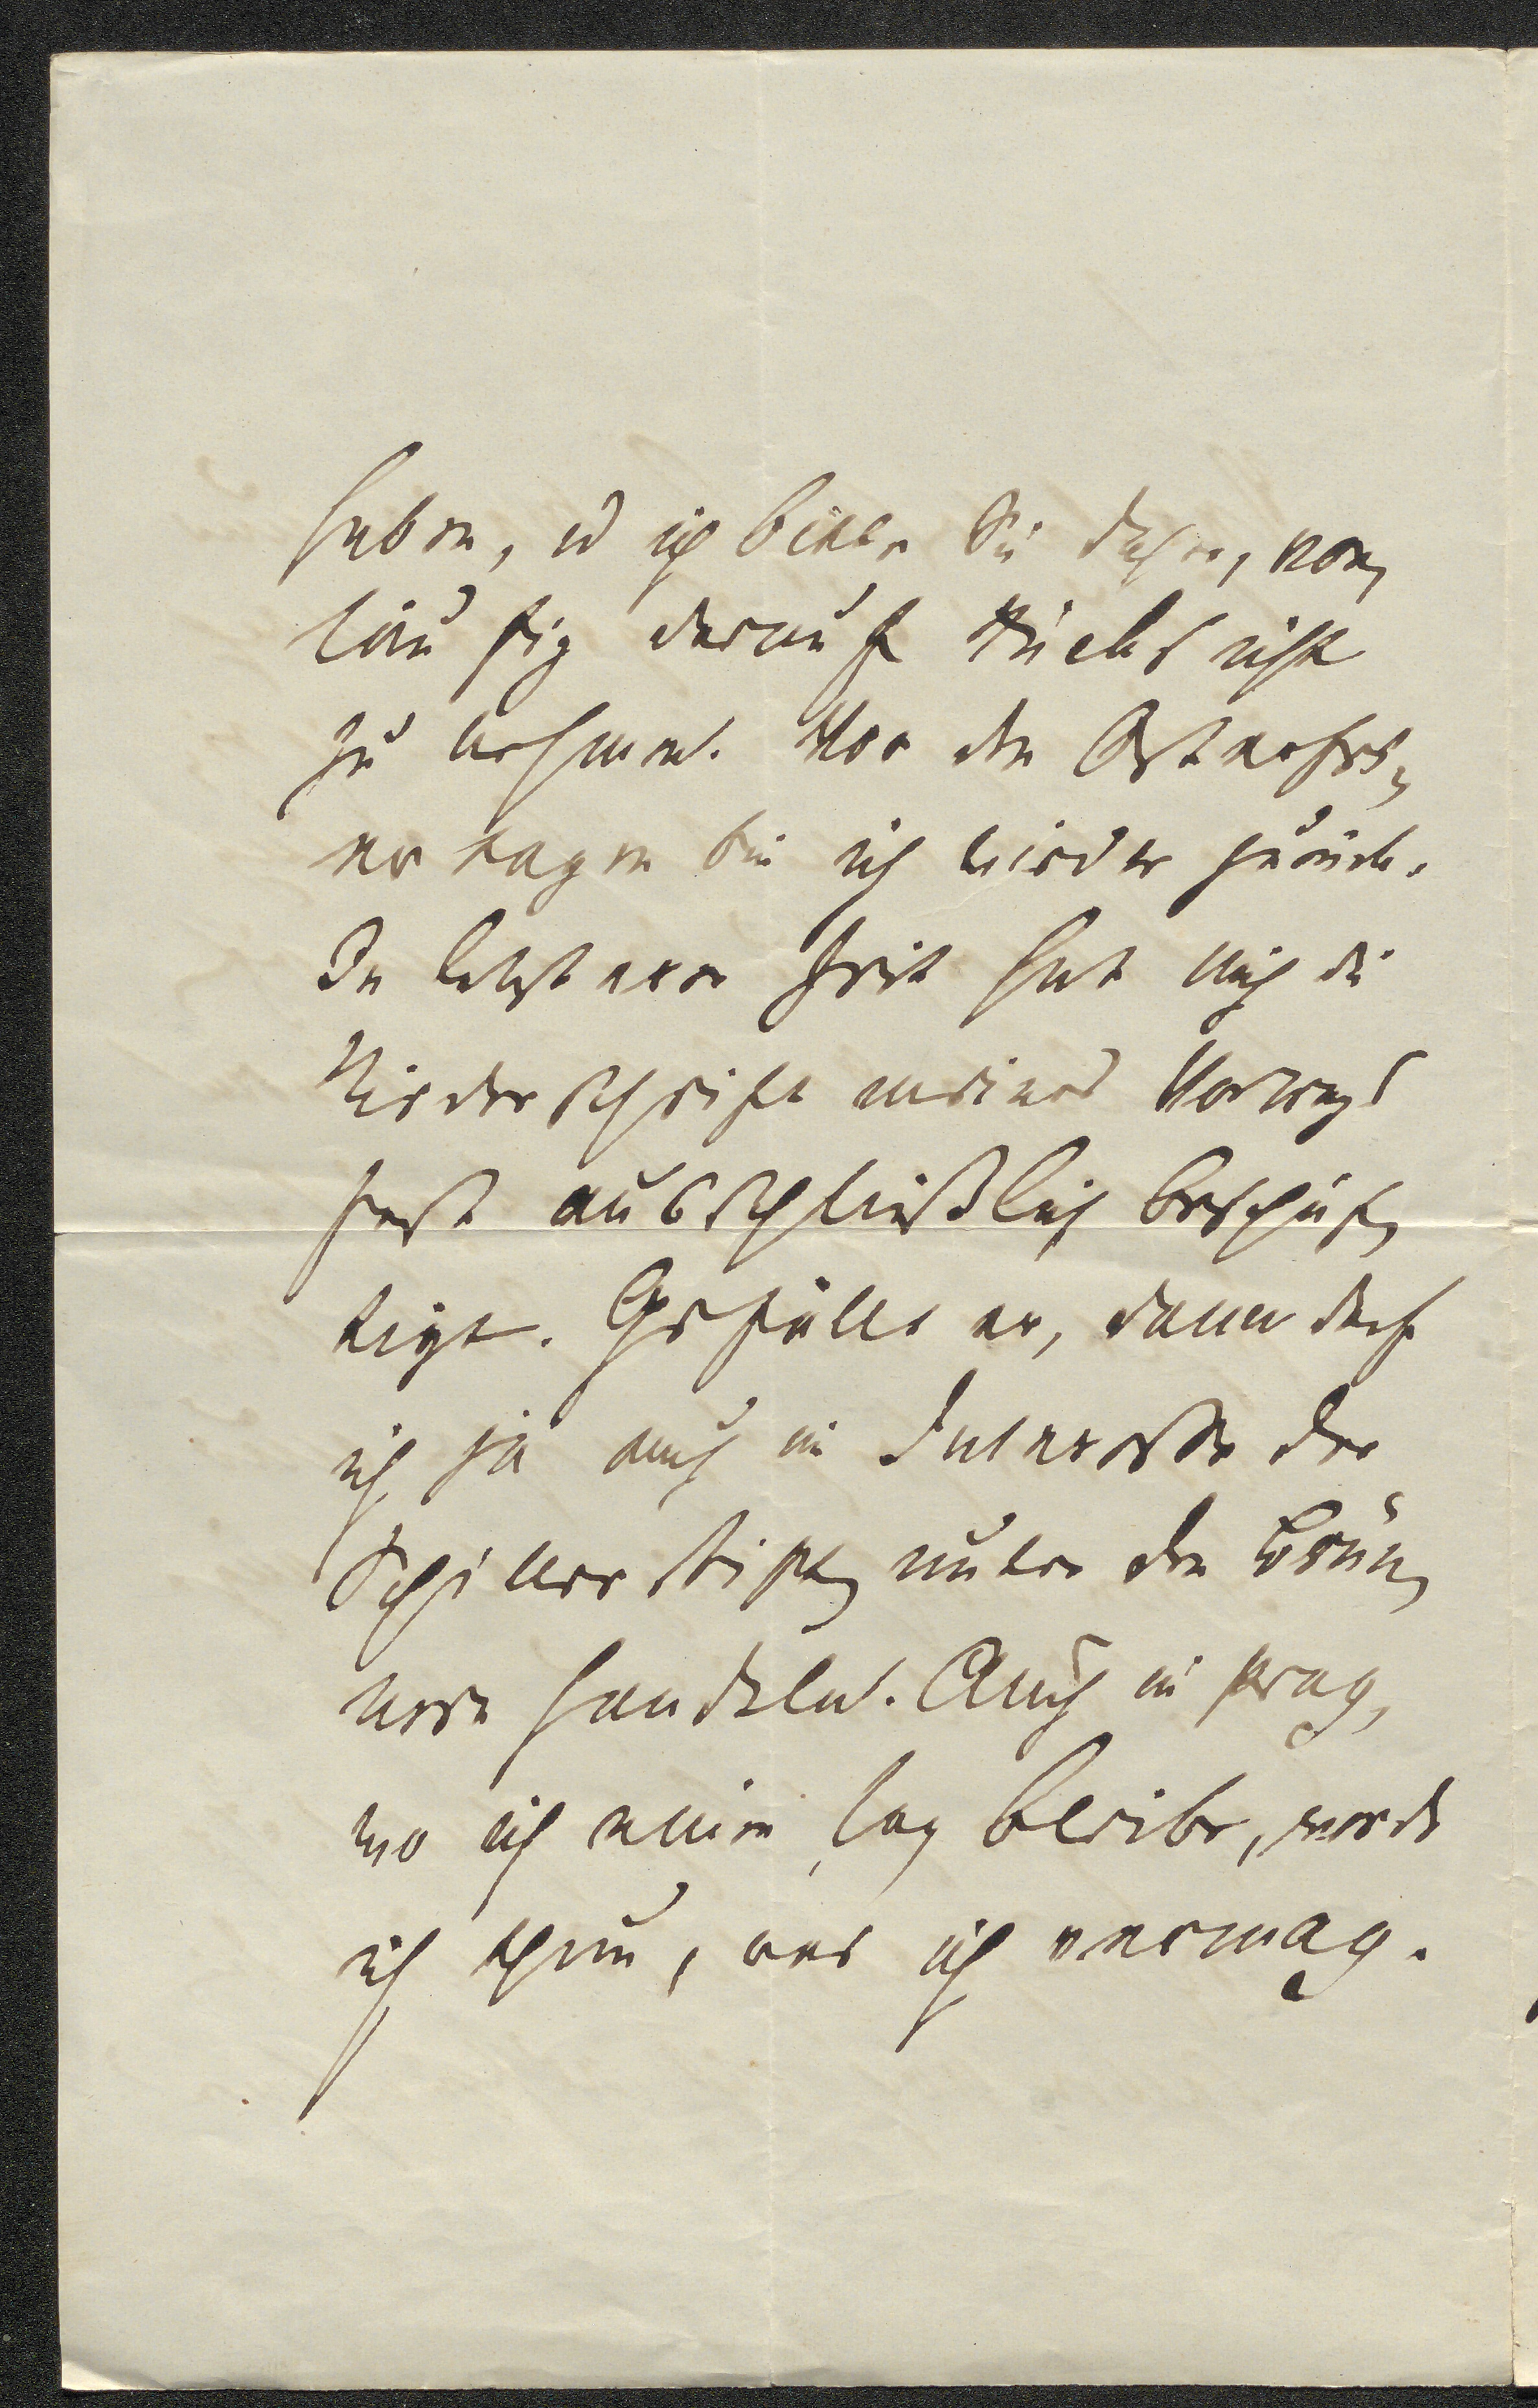 haben, u ich bitte Sie daher, vor-
läufig darauf Rücksicht
zu nehmen. Vor den Osterfei-
ertagen bin ich wieder zurück.
In letzterer Zeit hat mich die
Niederschrift meines Vortrags
fast ausschließlich beschäf-
tigt. Gefällt er, dann darf
ich ja auch im Interesse der
Schillerstiftg unter den Brün-
nern handeln. Auch in Prag,
wo ich einen Tag bleibe, werde
ich thun, was ich vermag.